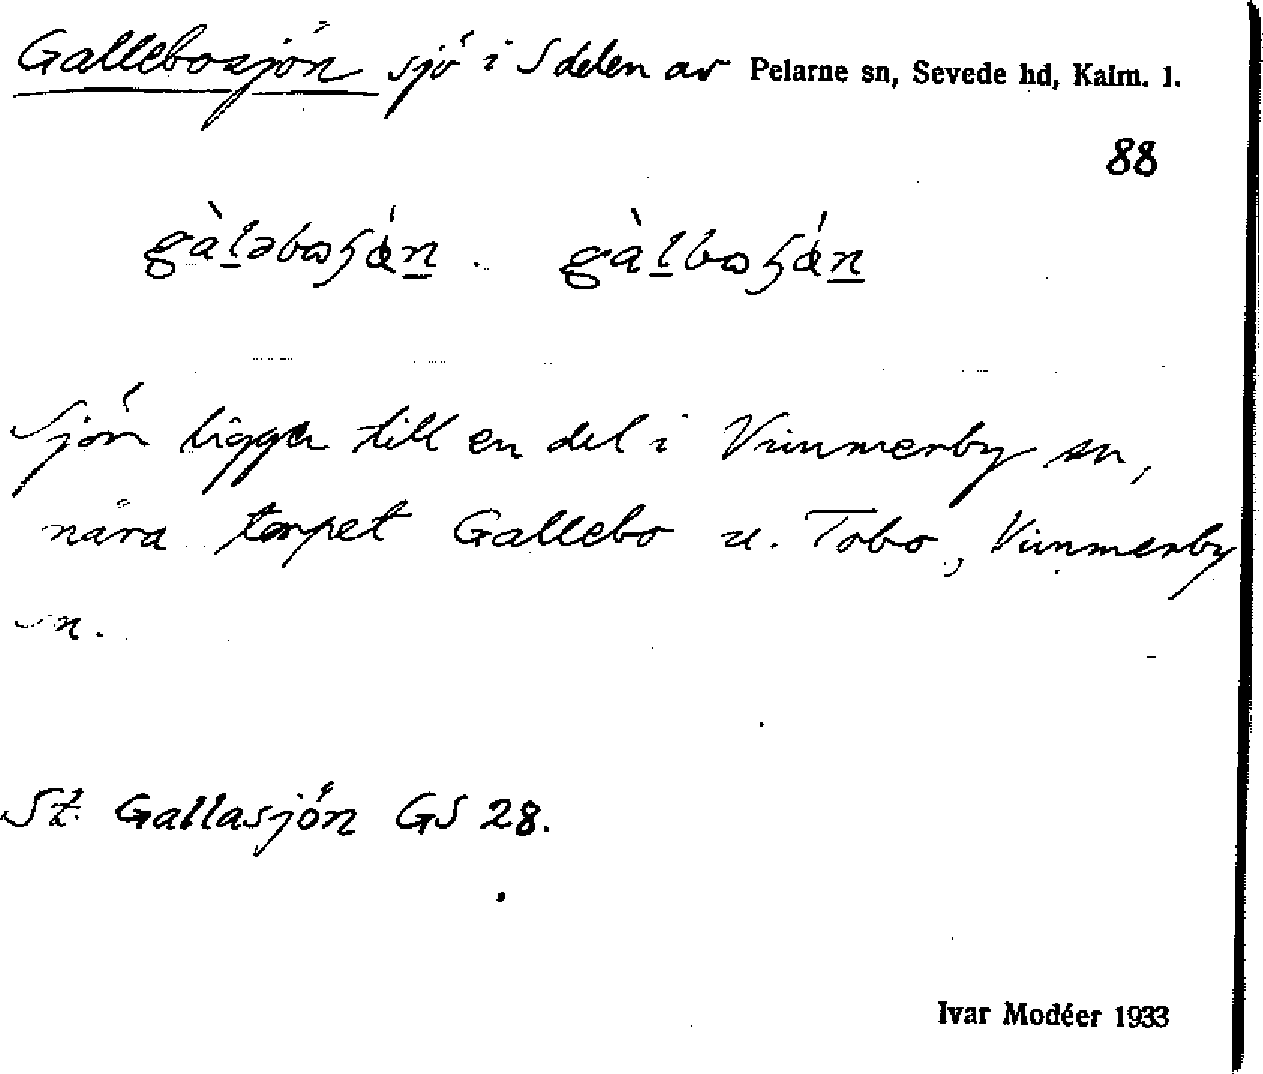 Gallebosjön sjö i S delen av Pelarne sn, Sevede hd, Kalm. l.
88
Sjön ligger till en del i Vimmerby sn,
nära torpet Gallebo u. Tobo, Vimmerby
sn.
St. Gallasjön GS 28.
Ivar Modéer 1933